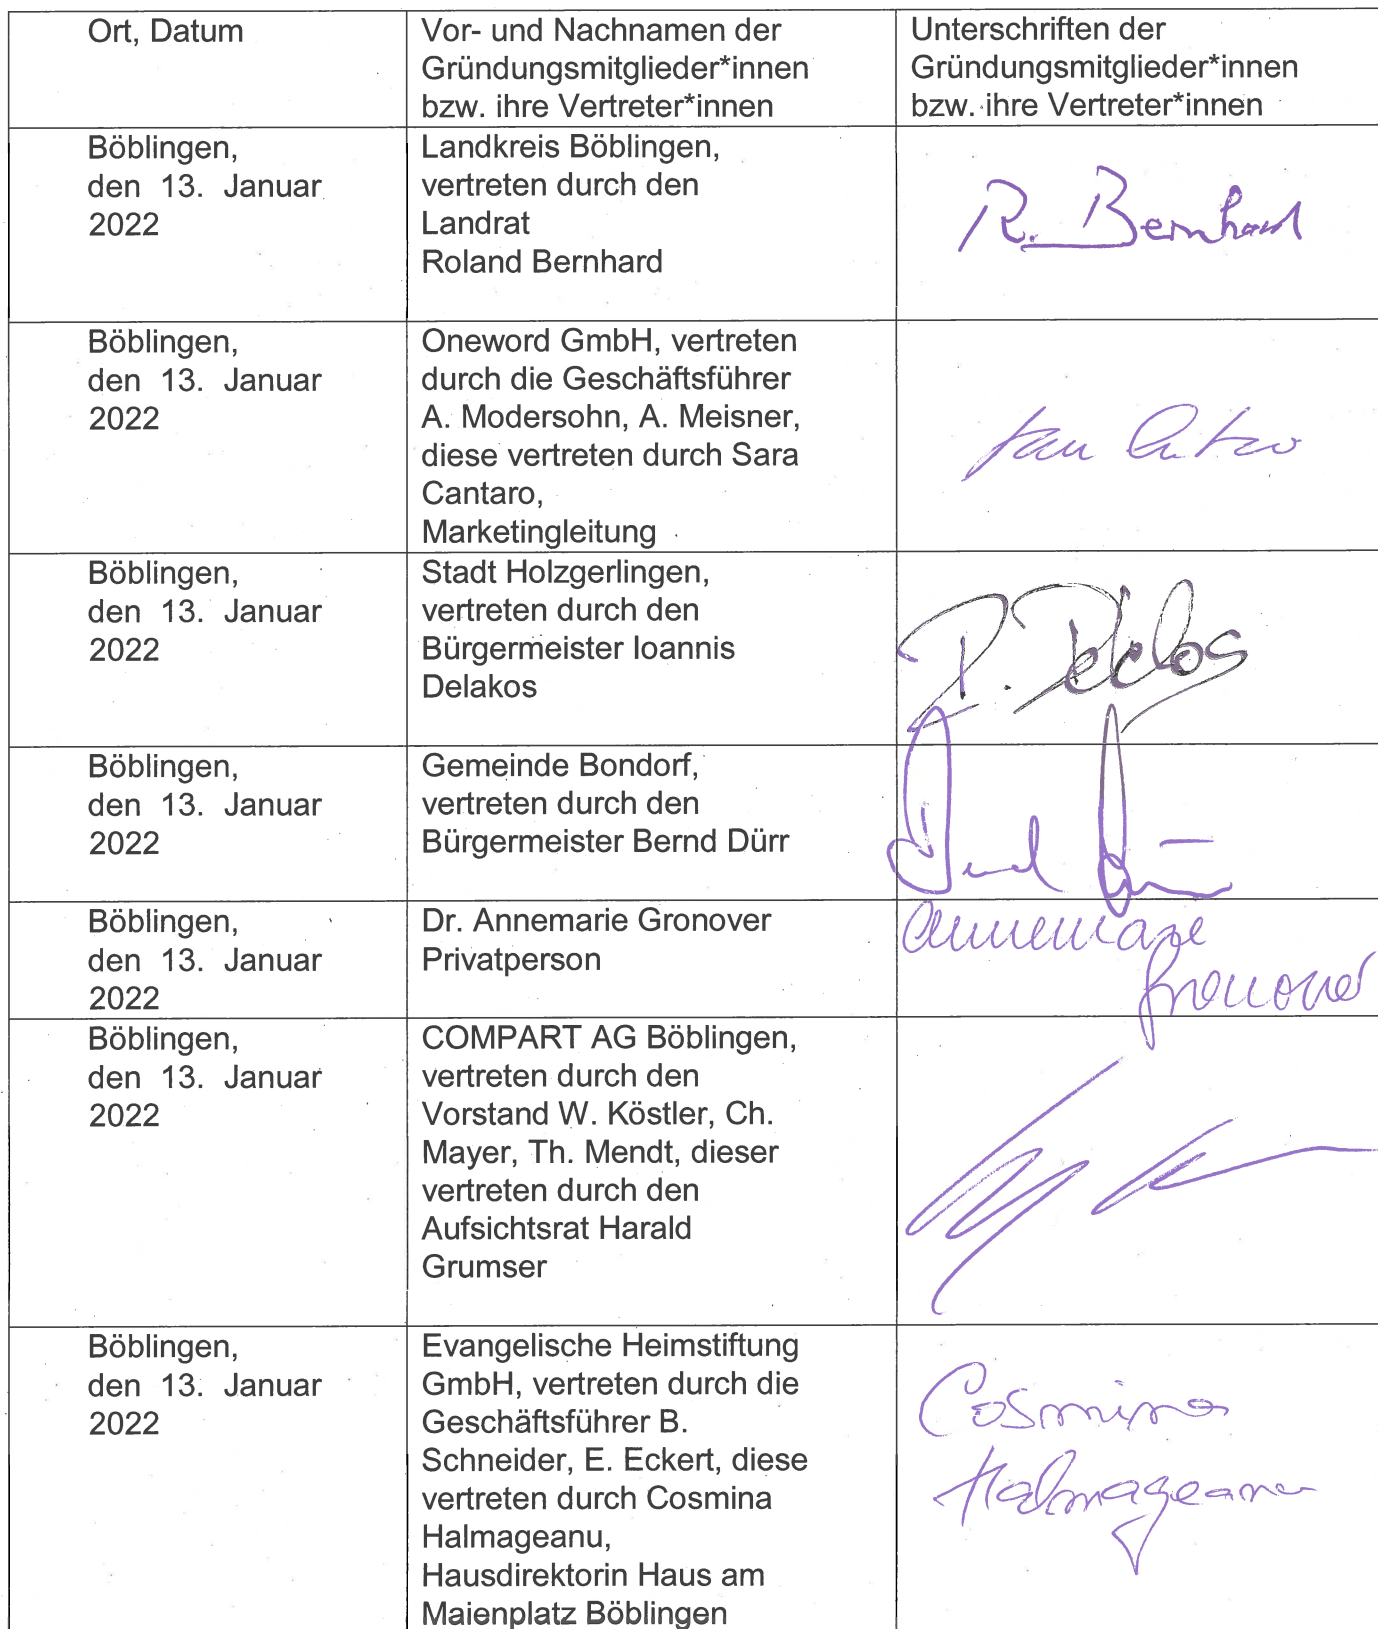 Ort, Datum
Vor- und Nachnamen der
Gründungsmitglieder*innen
bzw. ihre Vertreter*innen
Unterschriften der
Gründungsmitglieder*innen
bzw. ihre Vertreter*innen
Böblingen,
den 13. Januar
2022
Landkreis Böblingen,
vertreten durch den
Landrat
Roland Bernhard
R. Bernhard
Böblingen,
den 13. Januar
2022
Oneword GmbH, vertreten
durch die Geschäftsführer
A. Modersohn, A. Meisner,
diese vertreten durch Sara
Cantaro,
Marketingleitung
Böblingen,
den 13. Januar
2022
Stadt Holzgerlingen,
vertreten durch den
Bürgermeister Ioannis
Delakos
Böblingen,
den 13. Januar
2022
Gemeinde Bondorf,
vertreten durch den
Bürgermeister Bernd Dürr
Böblingen,
den 13. Januar
2022
Dr. Annemarie Gronover
Privatperson
Annemarie
Gronover
Böblingen,
den 13. Januar
2022
COMPART AG Böblingen,
vertreten durch den
Vorstand W. Köstler, Ch.
Mayer, Th. Mendt, dieser
vertreten durch den
Aufsichtsrat Harald
Grumser
Böblingen,
den 13. Januar
2022
Evangelische Heimstiftung
GmbH, vertreten durch die
Geschäftsführer B.
Schneider, E. Eckert, diese
vertreten durch Cosmina
Halmageanu,
Hausdirektorin Haus am
Maienplatz Böblingen
Cosmina
Halmageanu